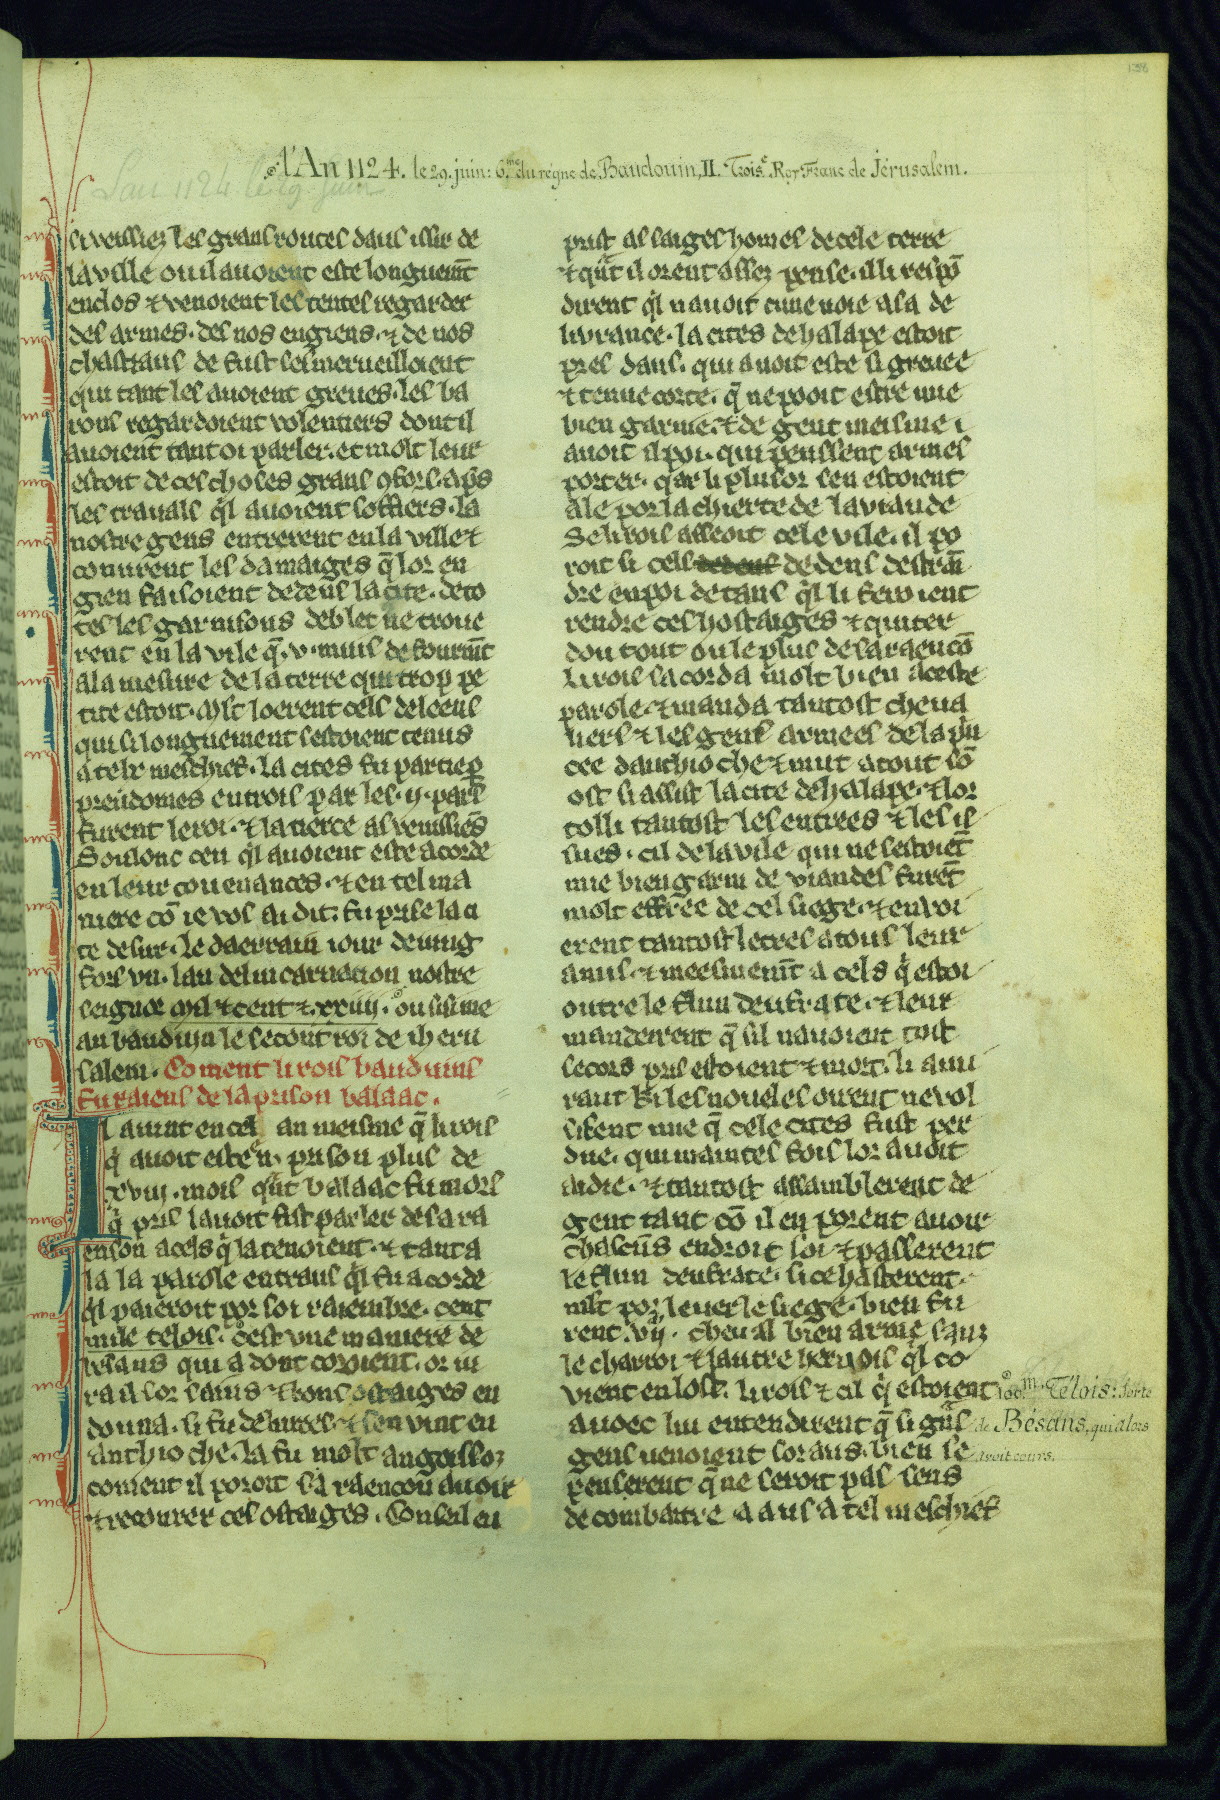 138
l'An 1124. le 29. juin: 6.me du régne de Baudouin, II. Trois.e Roy Franc de Jérusalem.
Lan 1124 le 29 juin
si veissiez les grans routes dans issir de
la ville ou il avoient este longuemt̄
enclos ⁊ venoient les tentes regarder
des armes. des nos engiens. ⁊ de nos
chastiaus de fust sesmerveilloient
qui tant les avoient greves. les ba
rons regardoient volentiers dont il
avoient tant oi parler. et molt leur
estoit de ces choses grans ꝯfors. ap̄s
les travals q̄l avoient soffiers. la
nostre gens entrerent en la ville ⁊
couvrent les damaiges q̄ lor en
gien faisoient dedens la cite. de to
tes les garnisons de blet ne trove
rent en la vile q̄ .v. muis de fourmt̄
a la mesure de la terre qui trop pe
tite estoit. mlt loerent cels de leens
qui si longuement sestoient tenus
a telx meschief. la cites fu partie ꝑ
preudomes en trois par les .ij. pars
furent le roi. ⁊ la tierce as venissiēs
Soulonc ceu q̄l avoient este acorde
en leur covenances. ⁊ en tel ma
niere cō ie vos ai dit. fu prise la ci
te de sur. le daerrain iour de iung
fors un. lan del incarnation nostre
seignor mil ⁊ cent ⁊ xxiiij. ou sisime
an bauduyn le secont roi de iheru
salem. Coment li rois bauduins
fu raiens de la prison balaac.
Il avint en cel an meisme q̄ li rois
q̄ avoit este en prison plus de
xviij. mois q̄nt balaac fu mors
q̄ pris lavoit fist parler de sa ra
enson a cels q̄ la tenoient. ⁊ tant a
la la parole entraus q̄l fu acorde
q̄l paieroit por soi raiembre. cent
mile telois. cest une maniere de
besans qui a dont coroient. or iu
ra il lor sanis ⁊ bons ostaiges en
donna. si fu delivres. ⁊ sen vint en
anthioche. la fu molt angoissoz
coment il poroit sa raencon avoir
⁊ recovrer ces ostaiges. Conseil en
prist as saiges homes de cele terre
⁊ q̄nt il orent assez pense. illi respō
dirent q̄l navoit cune voie a sa de
livrance. la cites de halape estoit
pres daus. qui avoit este si grevee
⁊ tenue corte. q̄ ne pooit estre mie
bien garnie. ⁊ de gent meisme i
avoit il poi. qui peussent armes
porter. qar li plusor sen estoient
ale por la chierte de la viande
Se li rois asseoit cele vile. il po
roit si cels dedens destrāi
dre en poi de tans q̄l li feroient
rendre ces hostaiges ⁊ quiter
dou tout ou le plus de sa raencō
li rois sacorda molt bien a ceste
parole. ⁊ manda tantost cheva
liers ⁊ les gens armees de la p̄n
cee danthioche ⁊ mut a tout sō
ost si assist la cite de halape. ⁊ lor
tolli tantost les entrees ⁊ les is
sues. cil de la vile qui ne sestoiēt
mie bien garni de viandes furēt
molt effree de cel siege. ⁊ envoi
erent tantost letres a tous leur
amis. ⁊ meesmemt̄ a cels q̄ estoi
outre le flun deufrate. ⁊ leur
manderent q̄ sil navoient tost
secors pris estoient ⁊ mort. li ami
raut ki les noveles oirent ne vol
sirent mie q̄ cele cites fust per
due. qui maintes fois lor avoit
aidie. ⁊ tantost assamblerent de
gent tant cō il en porent avoir
chascūs endroit soi ⁊ passerent
le flun deufrate. si ce hasterent
mlt por lever le siege. bien fu
rent .vij. cheval bien arme sanz
le charroi ⁊ lautre hernois q̄l co
vient en lost. li rois ⁊ cil q̄ estoient
avoec lui entendirent q̄ si grās
gens venoient sor aus. bien se
penserent q̄ ne seroit pas sens
de combatre a aus a tel meschief
100.m Télois: sorte
de Bésans, qui alors
avoit cours.